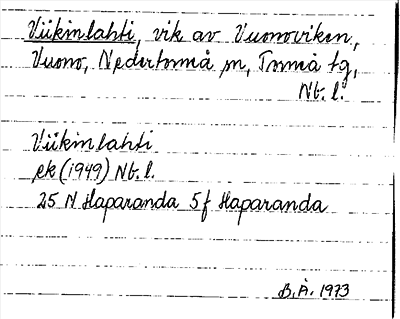 Viikinlahti, vik av Vuonoviken,
Vuono, Nedertorneå sn, Torneå tg,
Nb. l.
Viikinlahti
ek (1949) Nb. l.
25 N Haparanda 5f Haparanda
B. Å. 1973